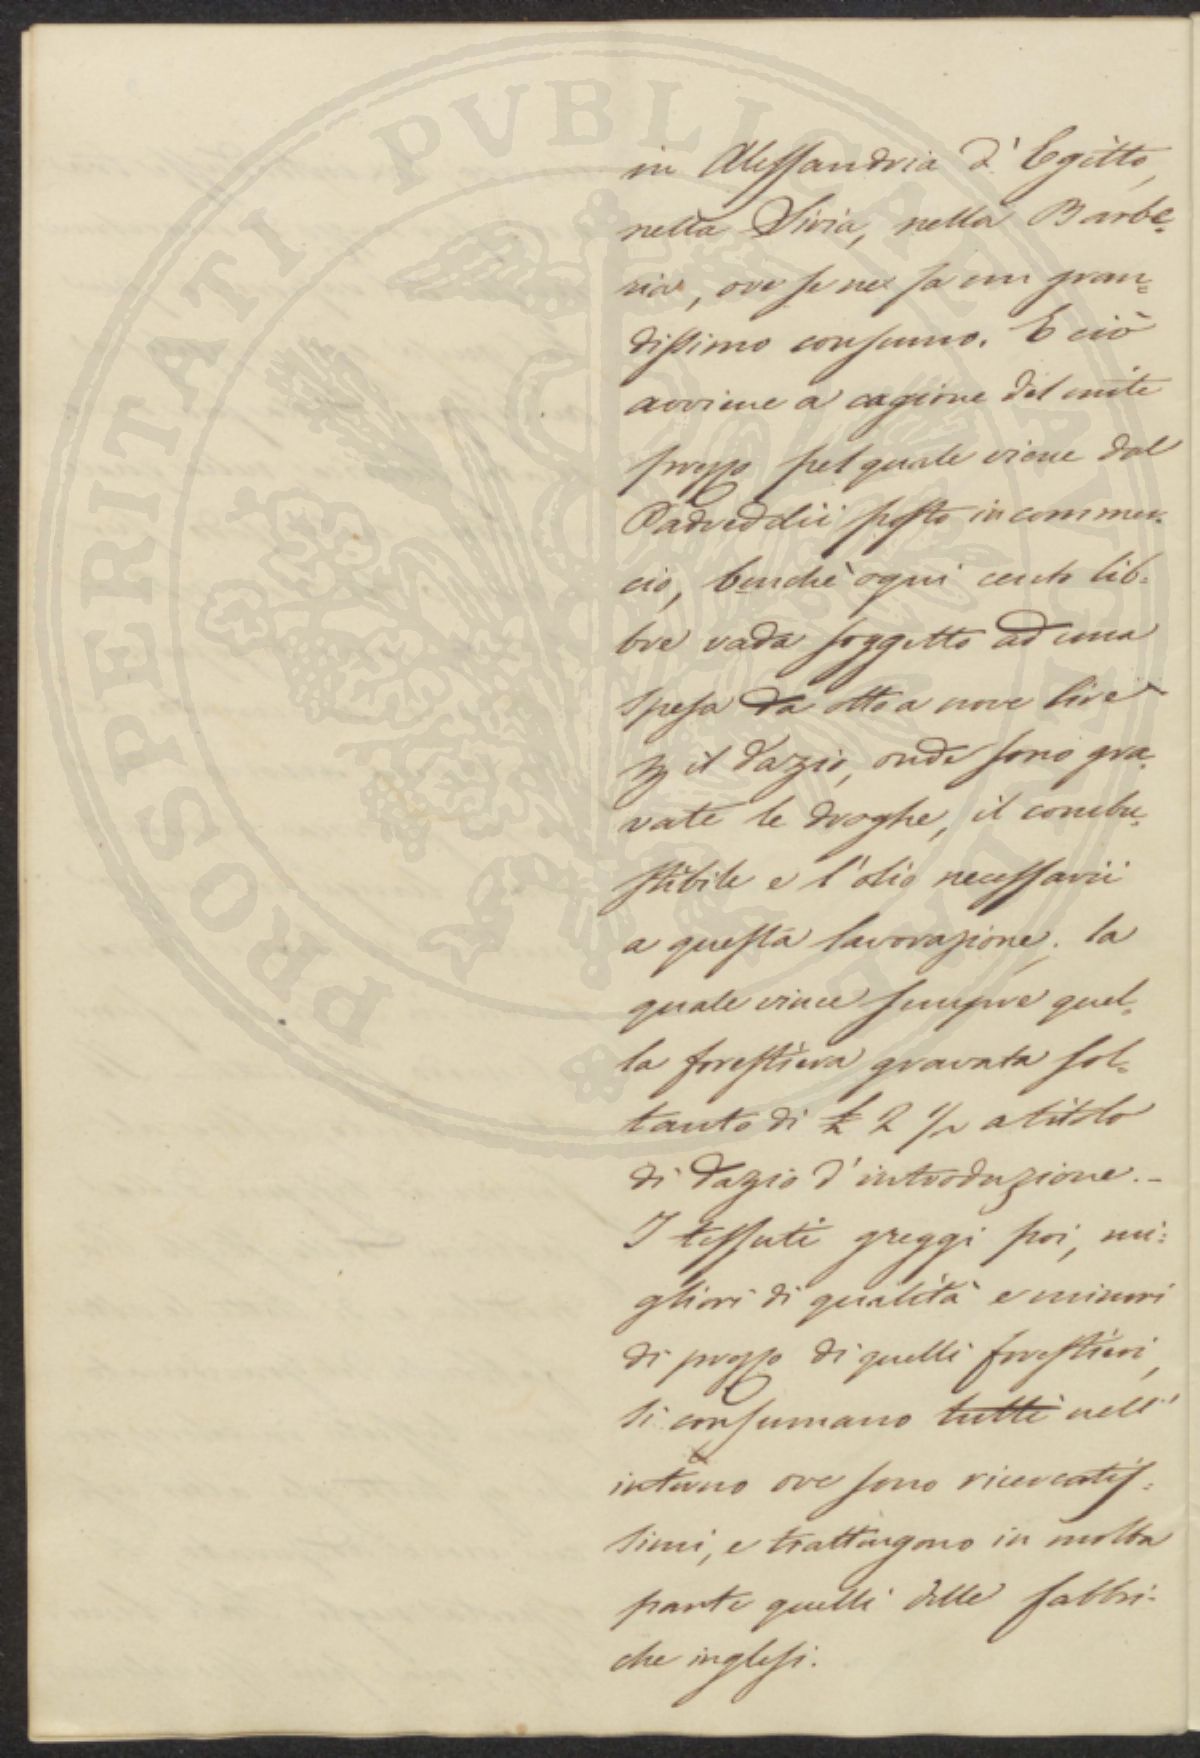 PROSPERITATI PVBLICAE AVGENDAE
in Alessandria d'Egitto,
nella Siria, nella Barbe-
ria, ove se ne fa un gran-
dissimo consumo. E ciò
avviene a cagione del mite
prezzo pel quale viene dal
Padreddii posto in commer-
cio, benchè ogni cento lib-
bre vada soggetto ad una
spesa da otto a nove lire
il dazio, onde sono gra-
vate le droghe, il combu-
stibile e l'olio necessarii
a questa lavorazione; la
quale vince sempre quel-
la forestiera gravata sol-
tanto di £ 2 1/2 a titolo
di dazio d'introduzione. -
I tessuti greggi poi, mi-
gliori di qualità e minori
di prezzo di quelli forestieri,
si consumano tutti nell'
interno ove sono ricercatis-
simi, e trattengono in molta
parte quelli delle fabbri-
che inglesi.